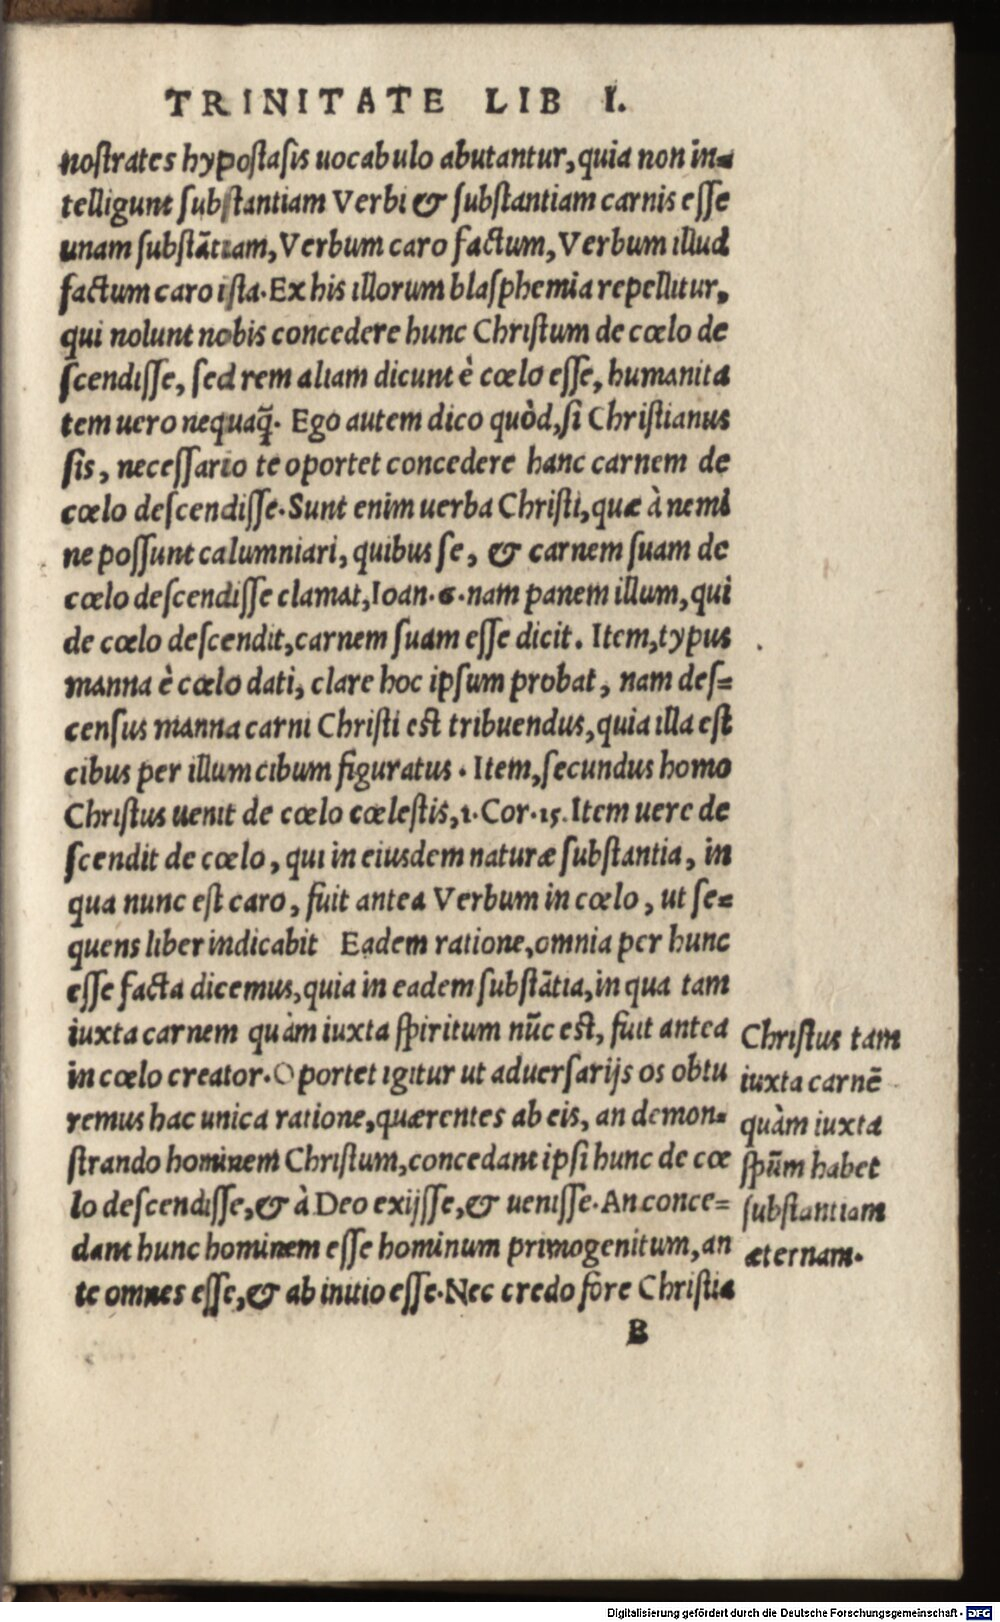 TRINITATE LIB I.
noſtrates hypoſtaſis uocabulo abutantur, quia non in=
telligunt ſubſtantiam Verbi & ſubſtantiam carnis eſſe
unam ſubſtātiam, Verbum caro factum, Verbum illud
factum caro iſta. Ex his illorum blaſphemia repellitur,
qui nolunt nobis concedere hunc Chriſtum de cœlo de
ſcendiſſe, ſed rem aliam dicunt è cœlo eſſe, humanita
tem uero nequaq̃. Ego autem dico quòd, ſi Chriſtianus
ſis, neceſſario te oportet concedere hanc carnem de
cœlo deſcendiſſe. Sunt enim uerba Chriſti, quæ à nemi
ne poſſunt calumniari, quibus ſe, & carnem ſuam de
cœlo deſcendiſſe clamat, Ioan. 6. nam panem illum, qui
de cœlo deſcendit, carnem ſuam eſſe dicit. Item, typus
manna è cœlo dati, clare hoc ipſum probat, nam deſ=
cenſus manna carni Chriſti eſt tribuendus, quia illa eſt
cibus per illum cibum figuratus. Item, ſecundus homo
Chriſtus uenit de cœlo cœleſtis, 1. Cor. 15. Item uere de
ſcendit de cœlo, qui in eiusdem naturæ ſubſtantia, in
qua nunc eſt caro, fuit antea Verbum in cœlo, ut ſe=
quens liber indicabit Eadem ratione, omnia per hunc
eſſe facta dicemus, quia in eadem ſubſtātia, in qua tam
iuxta carnem quàm iuxta ſpiritum nūc eſt, fuit antea
in cœlo creator. Oportet igitur ut aduerſarijs os obtu
remus hac unica ratione, quærentes ab eis, an demon=
ſtrando hominem Chriſtum, concedant ipſi hunc de cœ
lo deſcendiſſe, & à Deo exijſſe, & ueniſſe. An conce=
dant hunc hominem eſſe hominum primogenitum, an
te omnes eſſe, & ab initio eſſe. Nec credo fore Chriſtia
B
Chriſtus tam
iuxta carnē
quàm iuxta
ſpūm habet
ſubſtantiam
æternam.
Digitalisierung gefördert durch die Deutsche Forschungsgemeinschaft - DFG